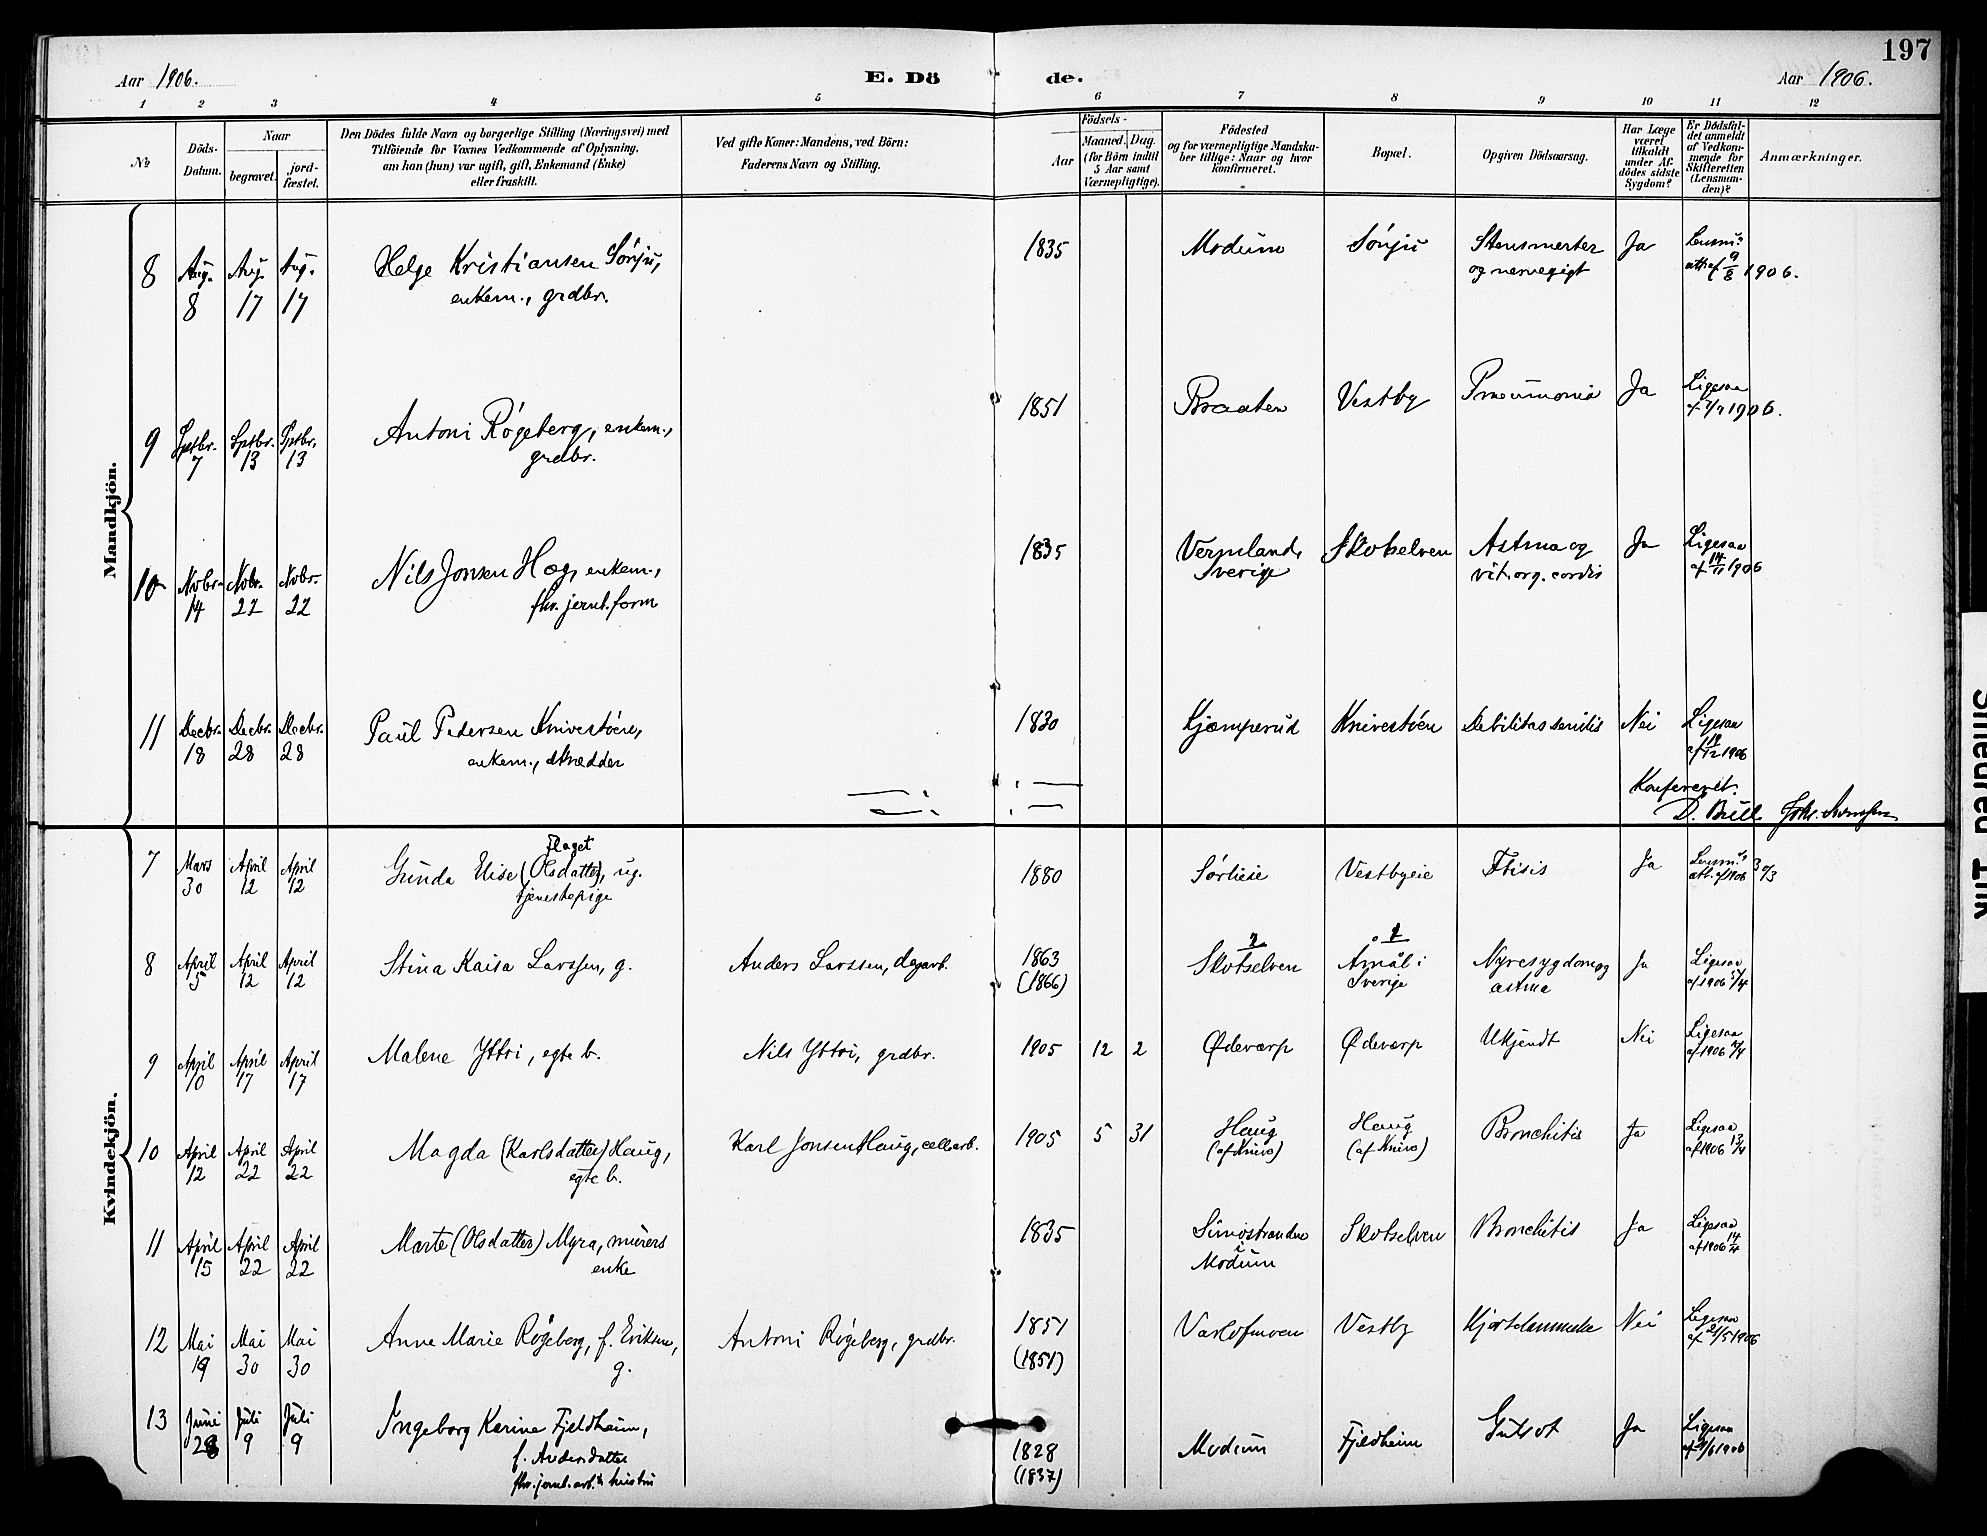 197
Aar 1906.
E. Dö
de.
Aar 1906.
1 2 3 4 5 6 7 8 9 10 11 12
No
Döds-
Datum.
Naar
begravet.
jord-
fæstet.
Den Dödes fulde Navn og borgerlige Stilling (Næringsvei) med
Tilföiende for Voxnes Vedkommende af Oplysning,
om han (hun) var ugift, gift, Enkemand (Enke)
eller fraskilt.
Ved gifte Koner: Mandens, ved Börn:
Faderens Navn og Stilling.
Födsels-
Aar
Maaned. Dag.
(for Börn indtil
5 Aar samt
Værnepligtige).
Födested
og for værnepligtige Mandska-
ber tillige: Naar og hvor
konfirmeret.
Bopæl.
Opgiven Dödsaarsag.
Har Læge
været
tilkaldt
under Af-
dödes sidste
Sygdom?
Er Dödsfal-
det anmeldt
af Vedkom-
mende for
Skifteretten
(Lensman-
den)?
Anmærkninger.
Mandkjön.
8 Aug. 8 Aug. 17 Aug. 17 Helge Kristiansen Sønju, 1835 Modum Sønju Stensmerter Ja
enkem., grdbr. og nervegigt att. af 9/8 1906.
9 Sptbr. 7 Sptbr. 13 Sptbr. 13 Antoni Røgeberg, enkem., 1851 Braaten Vestby Pneumonia Ja Ligesaa
grdbr. af 7/9 1906.
10 Novbr. 14 Novbr. 22 Novbr. 22 Nils Jonsen Hæg, enkem., 1835 Vermland, Skotselven Astma og Ja Ligesaa
fhv. jernt.form Sverige vit. org. cordis af 14/11 1906
11 Decbr. 18 Decbr. 28 Decbr. 28 Paul Pedersen Knivestøen, 1830 Kjæmperud Knivestøen Debilitas senilis Nei Ligesaa
enkem., skrædder af 19/12 1906
Konfereret.
D. Bull
Kvindekjön.
7 Mars 30 April 12 April 12 Gunda Elise (Olsdatter) Flaget, ug. 1880 Sørlieie Vestbyeie Ftisis Ja
tjenestepige
8 April 5 April 12 April 12 Stina Kaisa Larssen, g. Anders Larssen, dagarb. 1863 Skotselven 2 Åmål i 1 Nyresygdom og Ja Ligesaa
(1866) Sverige astma af 1906 5/4
9 April 10 April 17 April 17 Malene Yttri, egte b. Nils Yttri, grdbr. 1905 12 2 Ødevarp Ødevarp Ukjendt Nei Ligesaa
af 1906
10 April 12 April 22 April 22 Magda (Karlsdatter) Haug, Karl Jonsen Haug, cellarb. 1905 5 31 Haug Haug Bronchitis Ja Ligesaa
egte b. (af Knivs) (af Knivs) af 1906 13/4
11 April 15 April 22 April 22 Marte (Olsdatter) Myra, murers 1835 Simostranden Skotselven Bronchitis Ja Ligesaa
enke i Modum af 1906 14/4
12 Mai 19 Mai 30 Mai 30 Anne Marie Røgeberg, f. Eriksen, Antoni Røgeberg, grdbr. 1851 Vestby Hjertelammelse Nei Ligesaa
g. (1851) af 21/5 1906
13 Juni 28 Juli 9 Juli 9 Ingeborg Karine Fjeldheim, 1828 Modum Fjeldheim Gulsot Ja Ligesaa
f. Andersdatter (1837)
fhv. jernt.arb.s hustru